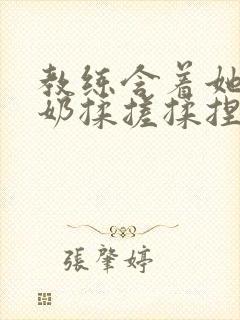 教练含着她
奶揉搓揉捏
張肇婷